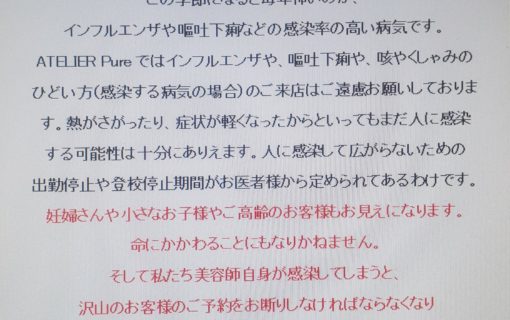 この季節になると毎年怖いのが、
インフルエンザや嘔吐下痢などの感染率の高い病気です。
ATELIER Pureではインフルエンザや、嘔吐下痢や、咳やくしゃみの
ひどい方(感染する病気の場合)のご来店はご遠慮お願いしておりま
す。熱がさがったり、症状が軽くなったからといってもまだ人に感染
する可能性は十分にありえます。人に感染して広がらないための
出勤停止や登校停止期間がお医者様から定められてあるわけです。
妊婦さんや小さなお子様やご高齢のお客様もお見えになります。
命にかかわることにもなりかねません。
そして私たち美容師自身が感染してしまうと、
沢山のお客様のご予約をお断りしなければならなくなり